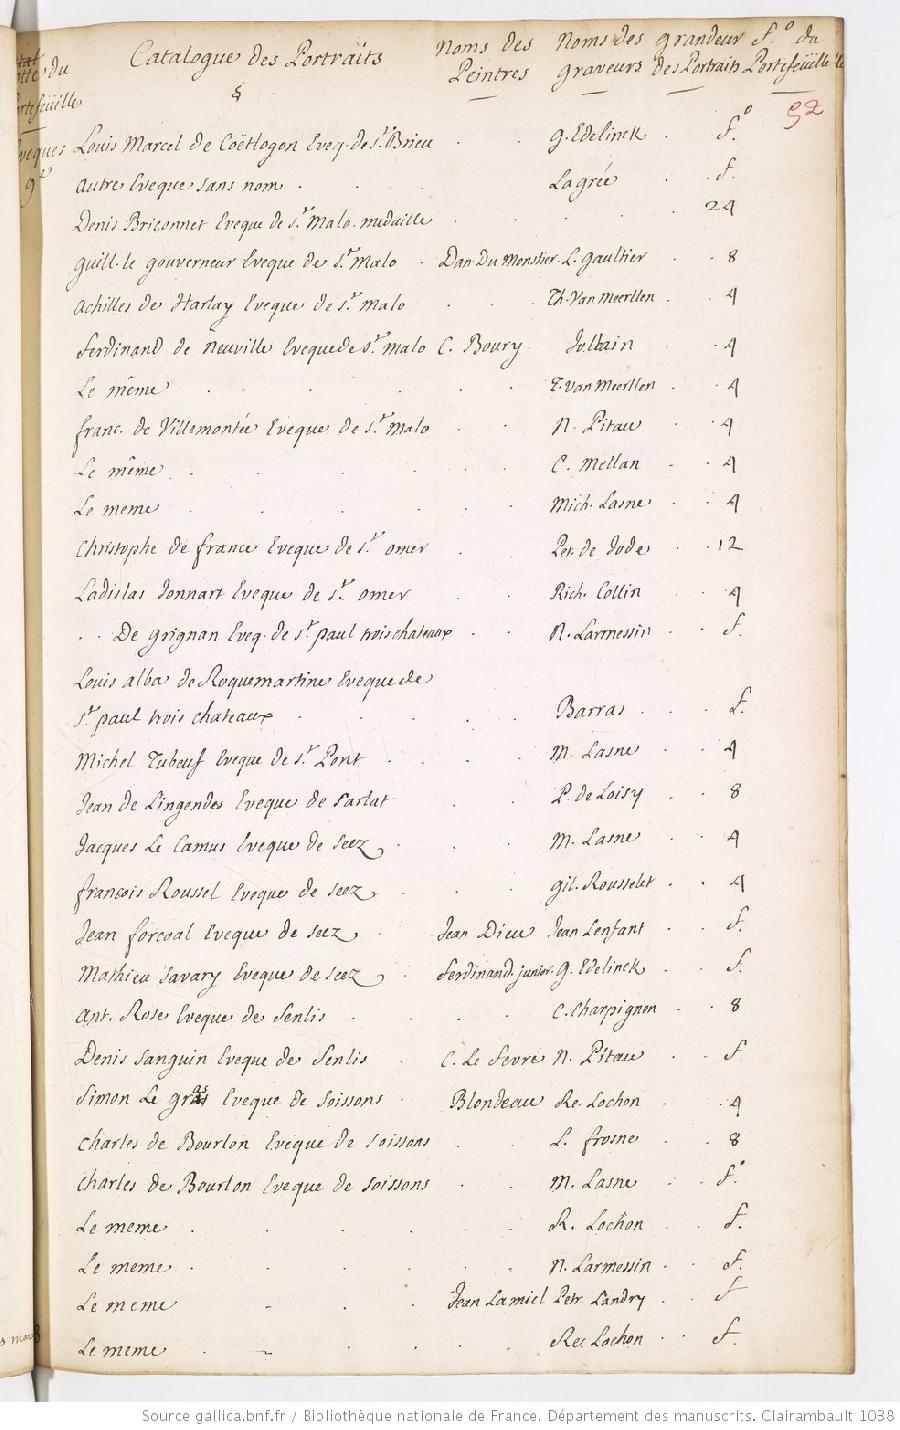 Catalogue des Portraits Noms des Peintres Noms des graveurs grandeur des Portraits f.° du Portefeüille
S
92
Louis Marcel de Coëtlogon Eveq. de S.t Brieu G. Edelinck f.°
autre Eveque sans nom Lagrée f.
Denis Briçonnet Eveque de S.t Malo. medaille 24
Guill. le gouverneur Eveque de S.t Malo Dan. Du Monstier L. Gaultier 8
Achilles de Harlay Eveque de S.t Malo Th. Van Meerllen 4
Ferdinand de Neuville Eveque de S.t Malo C. Boury Jollain 4
Le même T. Van Meerllen 4
franc. de Villemontée Eveque de S.t Malo N. Pitau 4
Le même C. Mellan 4
Le meme Mich. Lasne 4
Christophe de france Eveque de S.t omer Pet. de Jode 12
Ladislas Jonnart Eveque de S.t omer Rich. Collin 4
. . De Grignan Eveq. de S.t paul trois chateaux N. Larmessin f.
Louis alba de Roquemartine Eveque de
S.t paul trois chateaux Barras f.
Michel Tubeuf Eveque de S.t Pont M. Lasne 4
Jean de Lingendes Eveque de Sarlat P. de Loisy 8
Jacques Le Camus Eveque de Seez M. Lasne 4
françois Roussel Eveque de Seez Gil. Rousselet 4
Jean forcoal Eveque de Seez Jean Dieu Jean Lenfant f.
Mathieu Savary Eveque de Seez Ferdinand. junior. G. Edelinck f.
Ant. Rose Eveque de Senlis C. Charpignon 8
Denis Sanguin Eveque de Senlis C. Le Fevre N. Pitau f
Simon Le gras Eveque de Soissons Blondeau Re. Lochon 4
Charles de Bourlon Eveque de Soissons L. frosne 8
Charles de Bourlon Eveque de Soissons M. Lasne f.°
Le meme R. Lochon f.
Le meme N. Larmessin f.
Le meme Jean Lamiel Petr. Landry f
Le meme Re. Lochon f.
Source gallica.bnf.fr / Bibliothèque nationale de France. Département des manuscrits. Clairambault 1038